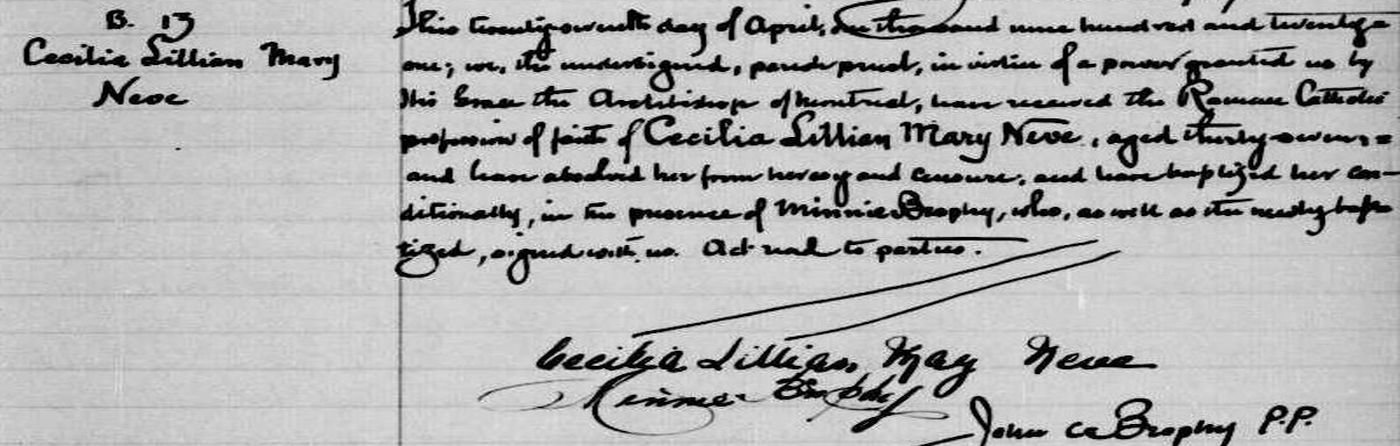 B. 13
Cecilia Lillian Mary
Neve
This twenty-seventh day of April, one thousand nine hundred and twenty-
one; we, the undersigned, parish priest, in virtue of a power granted us by
His Grace the Archbishop of Montreal, have received the Roman Catholic
profession of faith of Cecilia Lillian Mary Neve, aged thirty-seven,
and have absolved her from heresy and censure, and have baptized her con-
ditionally, in the presence of Minnie Brophy, who, as well as the newly bap-
tized, signed with us. Act read to parties.
Cecilia Lillian May Neve
Minnie Brophy
John Brophy P.P.